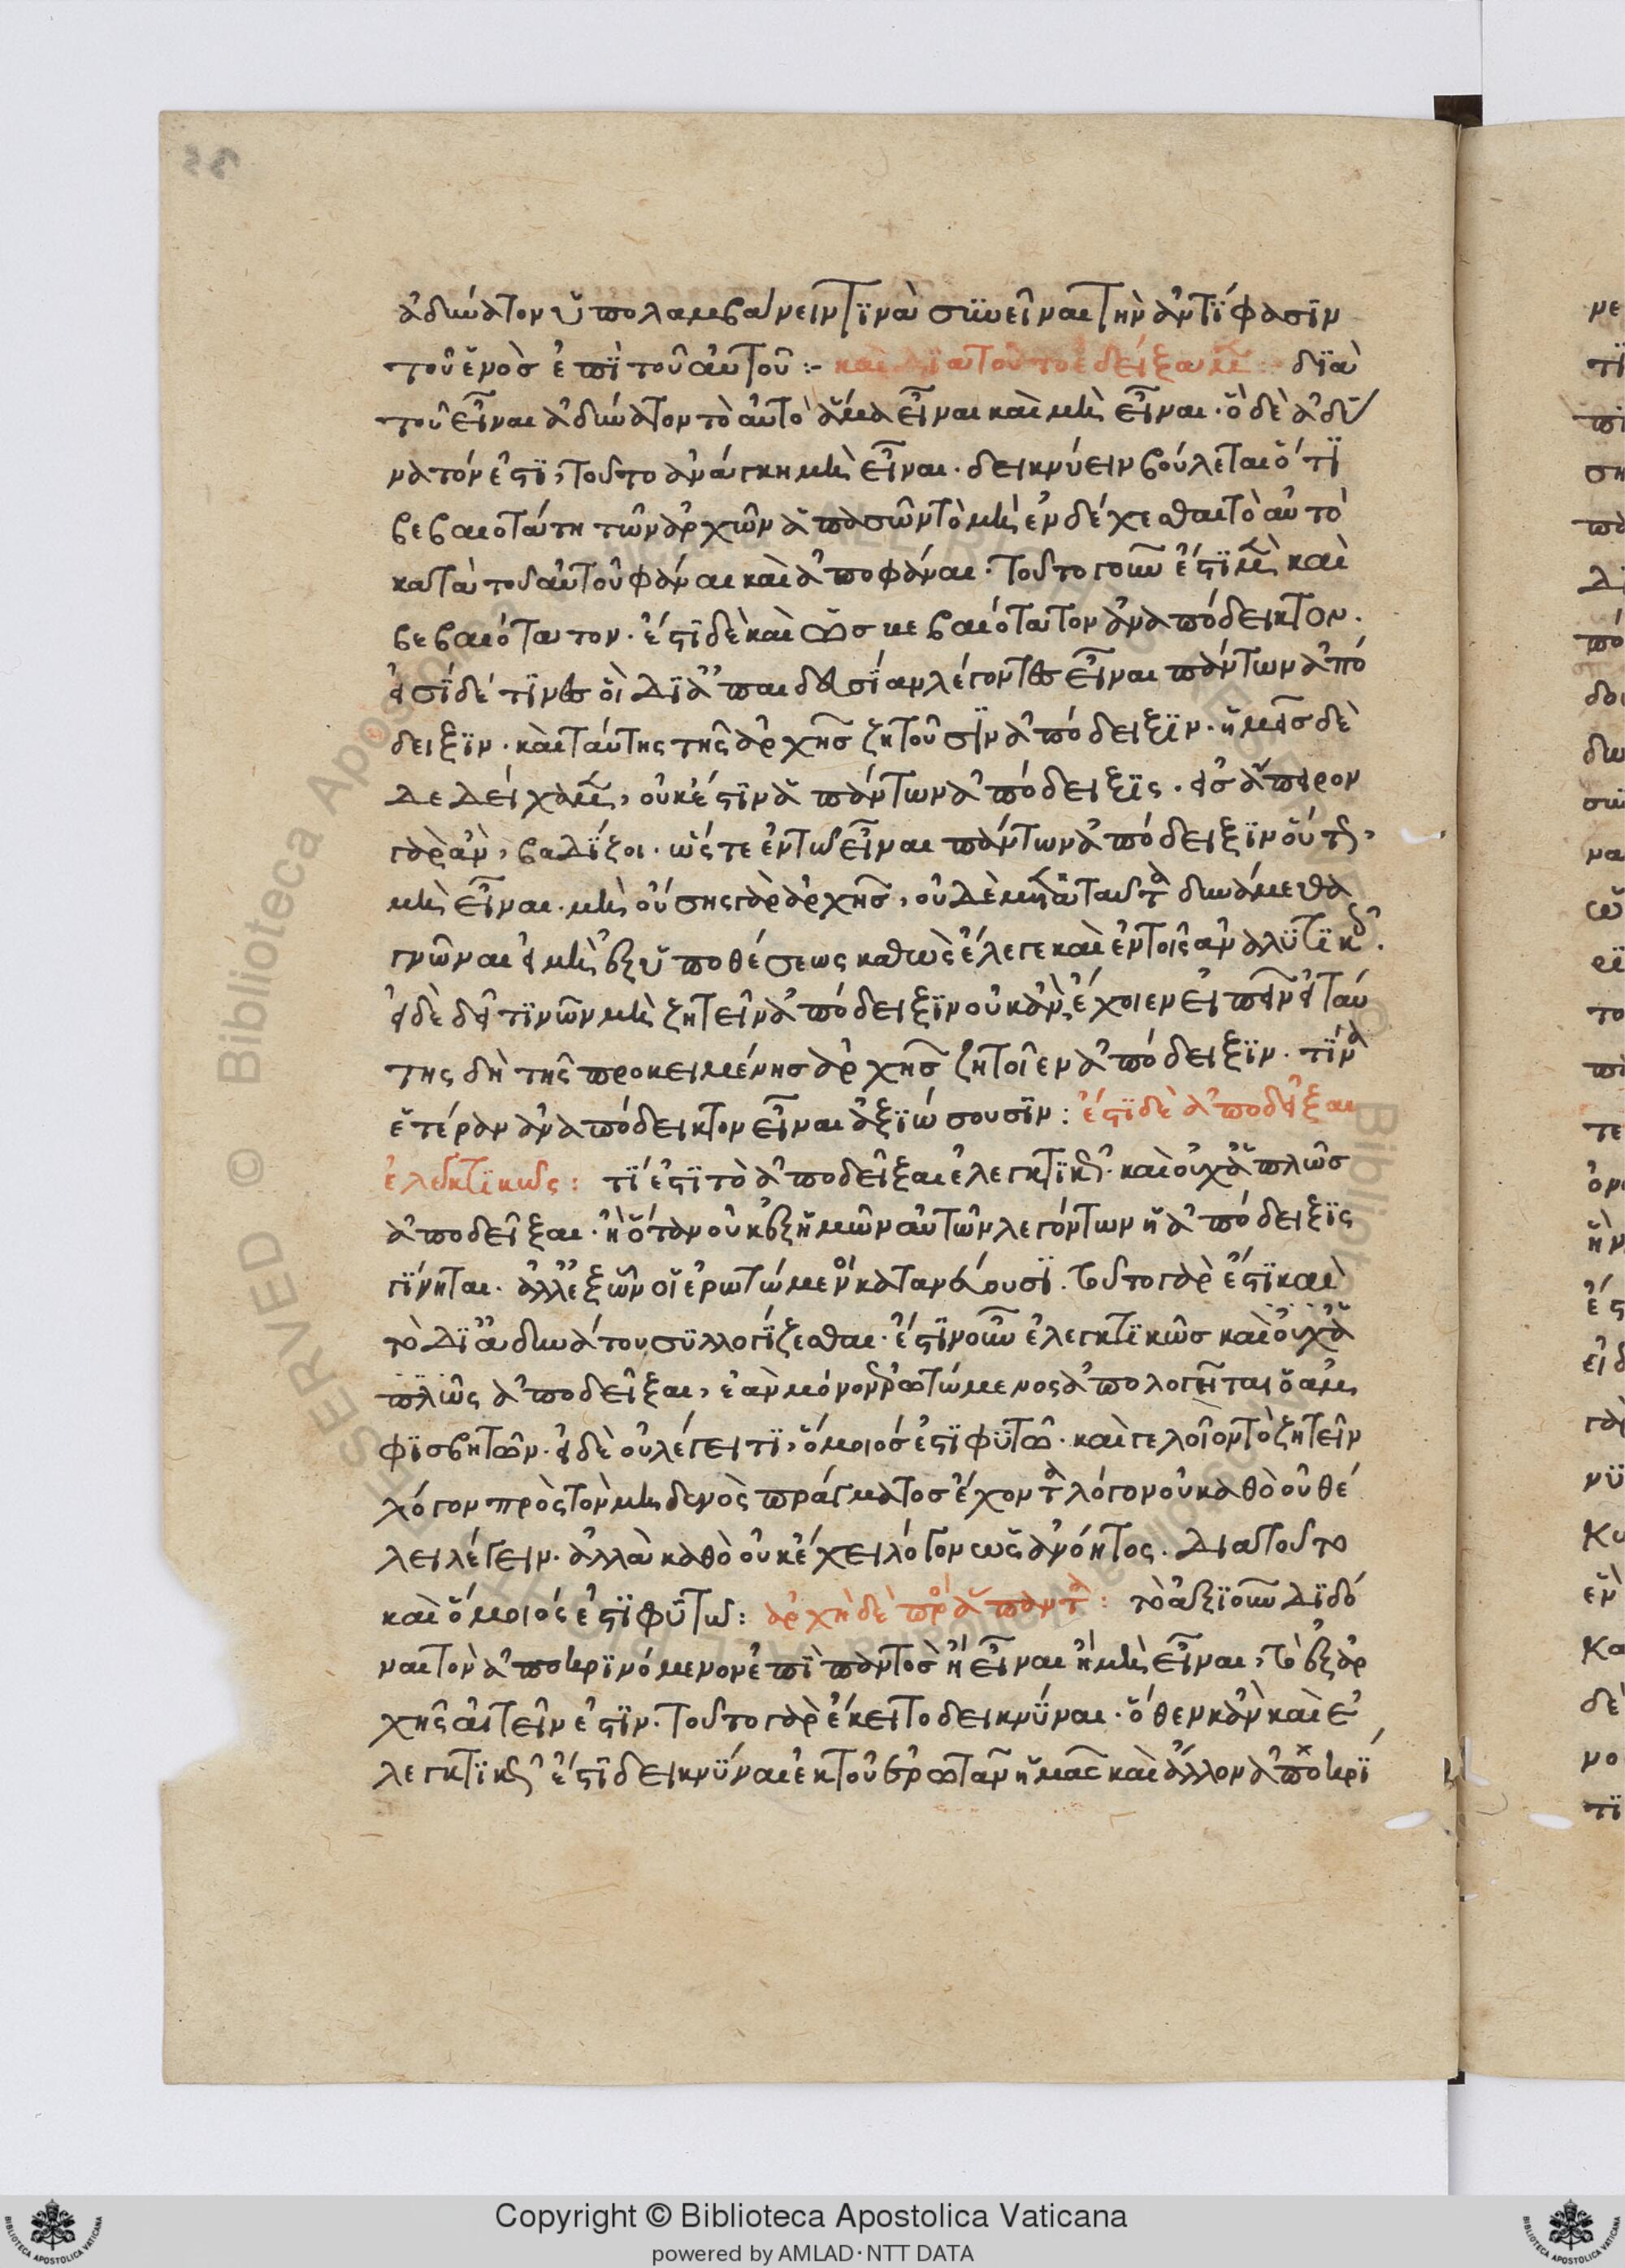 ἀδύνατον ὑπολαμβάνειν τινὰ συνεῖναι τὴν ἀντίφασιν
τοῦ ἑνὸς ἐπὶ τοῦ αὐτοῦ :- καὶ διὰ τούτο ἐδείξαμεν : διὰ
τοῦ εἶναι ἀδύνατον τὸ αὐτὸ ἅμα εἶναι καὶ μὴ εἶναι · ὃ δὲ ἀδύ
νατόν ἐστι, τοῦτο ἀνάγκη μὴ εἶναι · δεικνύειν βούλεται ὅτι
βεβαιοτάτη τῶν ἀρχῶν ἁπασῶν τὸ μὴ ἐνδέχεσθαι τὸ αὐτὸ
κατὰ τοῦ αὐτοῦ φάναι καὶ ἀποφάναι · τοῦτο γοῦν ἐστὶ μὲν καὶ
βεβαιότατον · ἔστι δὲ καὶ ὡς βεβαιότατον ἀναπόδεικτον ·
εἰσὶ δέ τινες οἳ δι' ἀπαιδευσίαν λέγοντες εἶναι πάντων ἀπό
δειξιν · καὶ ταύτης τῆς ἀρχῆς ζητοῦσιν ἀπόδειξιν · ἡμεῖς δὲ
δεδείχαμεν, οὐκ ἔστιν ἁπάντων ἀπόδειξις · εἰς ἄπειρον
γὰρ ἂν, βαδίζοι · ὥστε ἐν τῷ εἶναι πάντων ἀπόδειξιν οὕτως,
μὴ εἶναι · μὴ οὔσης γὰρ ἀρχῆς, οὐδὲ μετὰ ταῦτα δυνάμεθα
γνῶναι εἰ μὴ ἐξ ὑποθέσεως καθὼς ἔλεγε καὶ ἐν τοῖς ἀναλυτικοῖς ·
εἰ δὲ δεῖ τινῶν μὴ ζητεῖν ἀπόδειξιν οὐκ ἂν ἔχοιεν εἰπεῖν εἰ ταύ
της δὴ τῆς προκειμένης ἀρχῆς ζητοῖεν ἀπόδειξιν · τίνα
ἑτέραν ἀναπόδεικτον εἶναι ἀξιώσουσιν : ἔστι δὲ ἀποδεῖξαι
ἐλεγκτικῶς : τί ἐστι τὸ ἀποδεῖξαι ἐλεγκτικῶς · καὶ οὐχ ἁπλῶς
ἀποδεῖξαι · ἢ ὅταν οὐκ ἐξ ἡμῶν αὐτῶν λεγόντων ἡ ἀπόδειξις
γίνηται · ἀλλ' ἐξ ὧν οἱ ἐρωτώμενοι κατανεύουσι · τοῦτο γὰρ ἐστι καὶ
τὸ δι' ἀδυνάτου συλλογίζεσθαι · ἔστιν οὖν ἐλεγκτικῶς καὶ οὐχ ἁ
πλῶς ἀποδεῖξαι, ἐὰν μόνον ἐρωτώμενος ἀπολογῆται ὁ ἀμ
φισβητῶν · εἰ δὲ οὐ λέγει τι, ὅμοιός ἐστι φυτῷ · καὶ γελοῖον τὸ ζητεῖν
λόγον πρὸς τὸν μηδενὸς πράγματος ἔχοντα λόγον οὐ καθὸ οὐ θέ
λει λέγειν · ἀλλὰ καθὸ οὐκ ἔχει λόγον ὡς ἀνόητος · διὰ τοῦτο
καὶ ὅμοιός ἐστι φυτῷ : ἀρχὴ δὲ πρὸς ἅπαντα : τὸ ἀξιοῦν διδό
ναι τὸν ἀποκρινόμενον ἐπὶ παντὸς ἢ εἶναι ἢ μὴ εἶναι, τὸ ἐξ ἀρ
χῆς αἰτεῖν ἐστιν · τοῦτο γὰρ ἔκειτο δεικνύναι · ὅθεν κἂν καὶ ἐ
λεγκτικῶς ἔστι δεικνύναι ἐκ τοῦ ἐρωτᾶν ἡμᾶς καὶ ἄλλον ἀποκρί